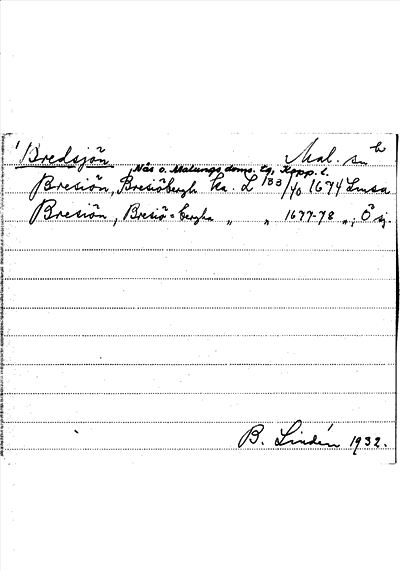 Bredsjön Mal. sn
Nås o. Malungs doms. tg, Kopp. l.
Bresiön, Bresiöbergh Ka. L 133/40 1674 Lmsa
Bresiön, Bresiö=bergha " " 1677-78 ", Ö sj.
B. Lindén 1932.